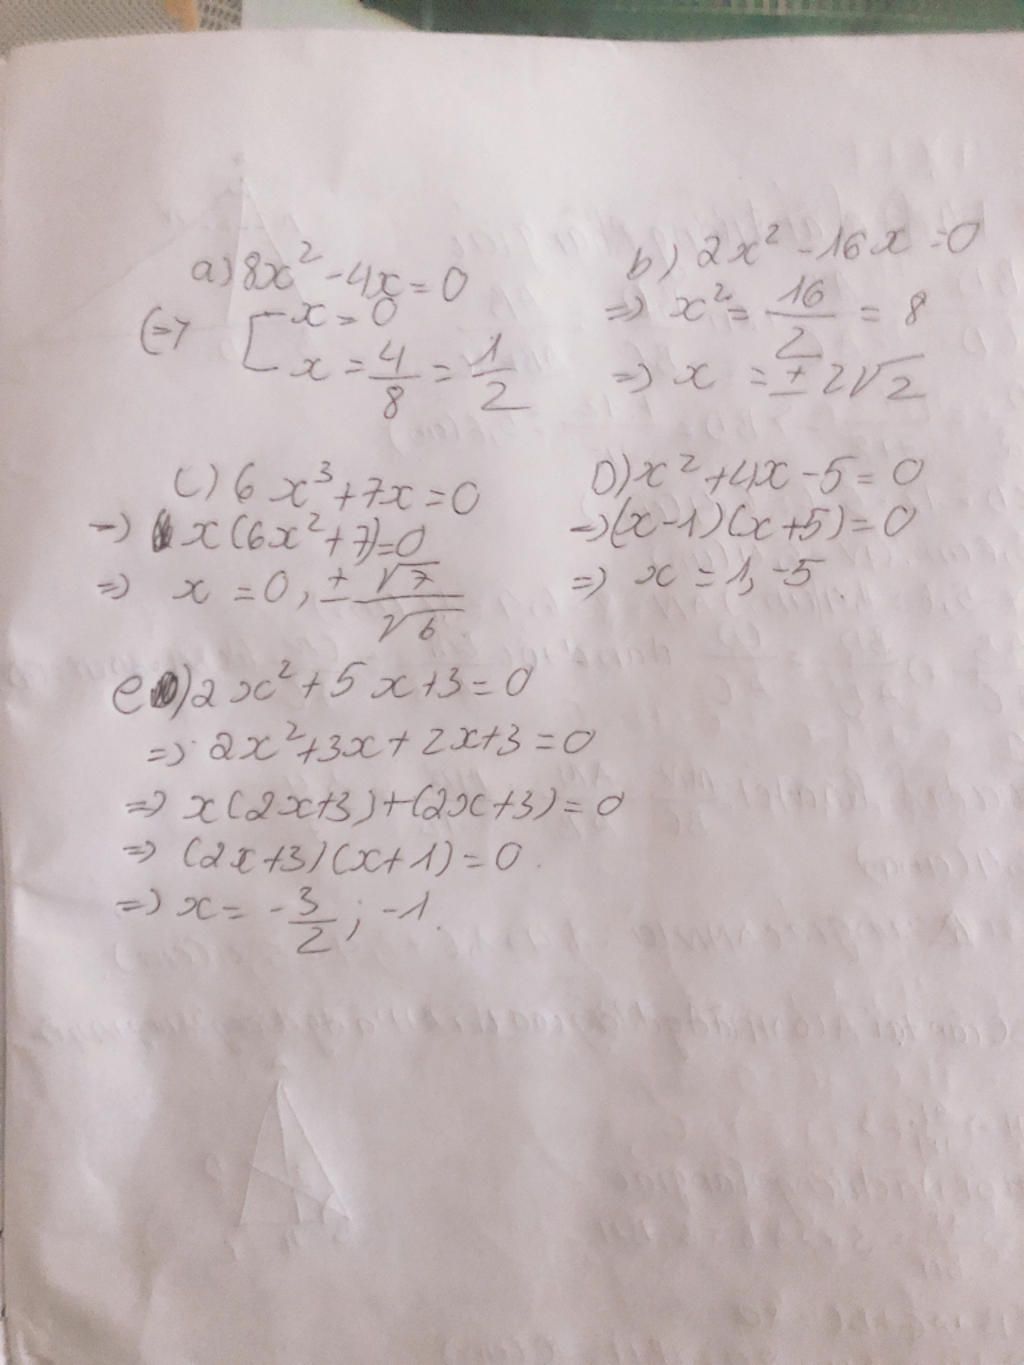 a) 8x² - 4x = 0
(=> [ x = 0
x = 4/8 = 1/2
b) 2x² - 16x = 0
=> x² = 16/2 = 8
=> x = ± 2√2
c) 6x³ + 7x = 0
=> x(6x² + 7) = 0
=> x = 0, ± √7/√6
D) x² + 4x - 5 = 0
=> (x - 1)(x + 5) = 0
=> x = 1, -5
e) 2x² + 5x + 3 = 0
=> 2x² + 3x + 2x + 3 = 0
=> x(2x + 3) + (2x + 3) = 0
=> (2x + 3)(x + 1) = 0.
=> x = -3/2 ; -1.